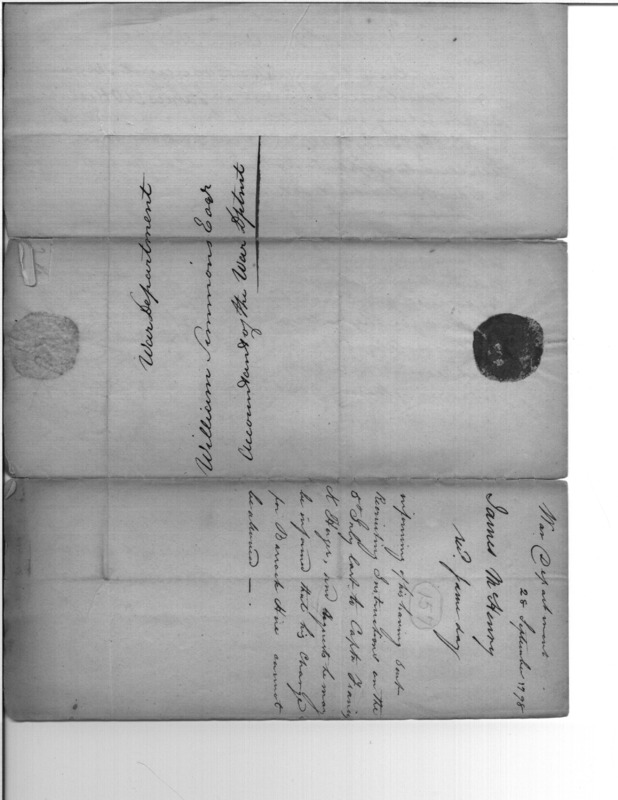 War Department
William Simmons Esqr
Accountant of the War Dptmt
War Department
28 September 1798
James McHenry
recd. same day
157
informing of his having sent
Recruiting Instructions on the
5th July last to Capt.
K. Huger, and requests he may
be informed that his Charge
for Barrack Hire cannot
be allowed —.